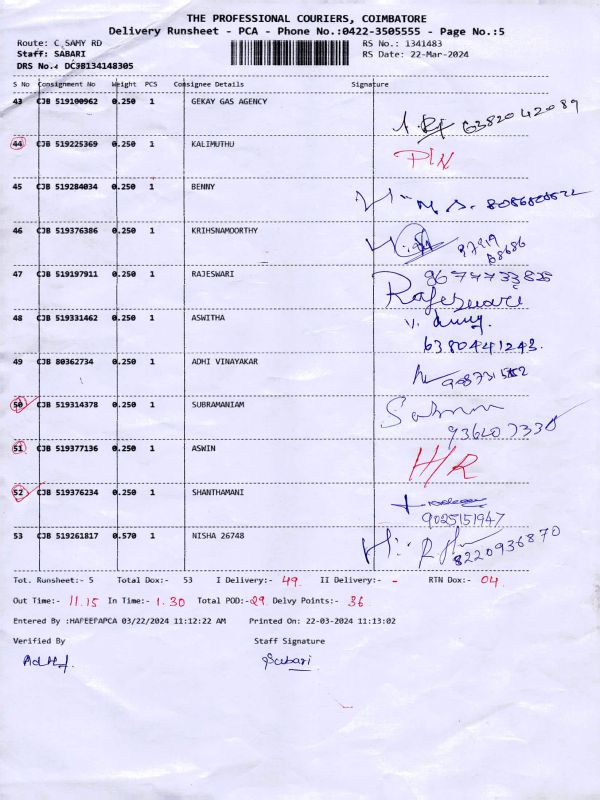 THE PROFESSIONAL COURIERS, COIMBATORE
Delivery Runsheet - PCA - Phone No.:0422-3505555 - Page No.:5
Route: C SAMY RD RS No.: 1341483
Staff: SABARI RS Date: 22-Mar-2024
DRS No.: DC9B134148305
S No Consignment No Weight PCS Consignee Details Signature
43 CJB 519100962 0.250 1 GEKAY GAS AGENCY 6382042089
44 CJB 519225369 0.250 1 KALIMUTHU PIN
45 CJB 519284034 0.250 1 BENNY
46 CJB 519376386 0.250 1 KRIHSNAMOORTHY
47 CJB 519197911 0.250 1 RAJESWARI 9677733825
Rajeswari
48 CJB 519331462 0.250 1 ASWITHA
6380441243.
49 CJB 80362734 0.250 1 ADHI VINAYAKAR
50 CJB 519314378 0.250 1 SUBRAMANIAM
51 CJB 519377136 0.250 1 ASWIN H/R
52 CJB 519376234 0.250 1 SHANTHAMANI
9025151947
53 CJB 519261817 0.570 1 NISHA 26748 8220936870
Tot. Runsheet:- 5 Total Dox:- 53 I Delivery:- 49 II Delivery:- - RTN Dox:- 04.
Out Time:- 11.15 In Time:- 1.30 Total POD:- 29 Delvy Points:- 36
Entered By :HAFEEFAPCA 03/22/2024 11:12:22 AM Printed On: 22-03-2024 11:13:02
Verified By Staff Signature
Sabari